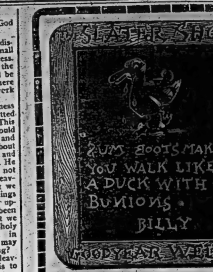 God
dis-
mall
ess.
the
l be
here
erk
ness
tted.
This
ould
and
bout
and
He
not
eav-
we
ings
op-
been
we
holy
in
may
ng?
leav-
is to
SLATER SHO
GUM BOOTS MAK
YOU WALK LIKE
A DUCK WITH
BUNIONS
BILLY
GOODYEAR WEL